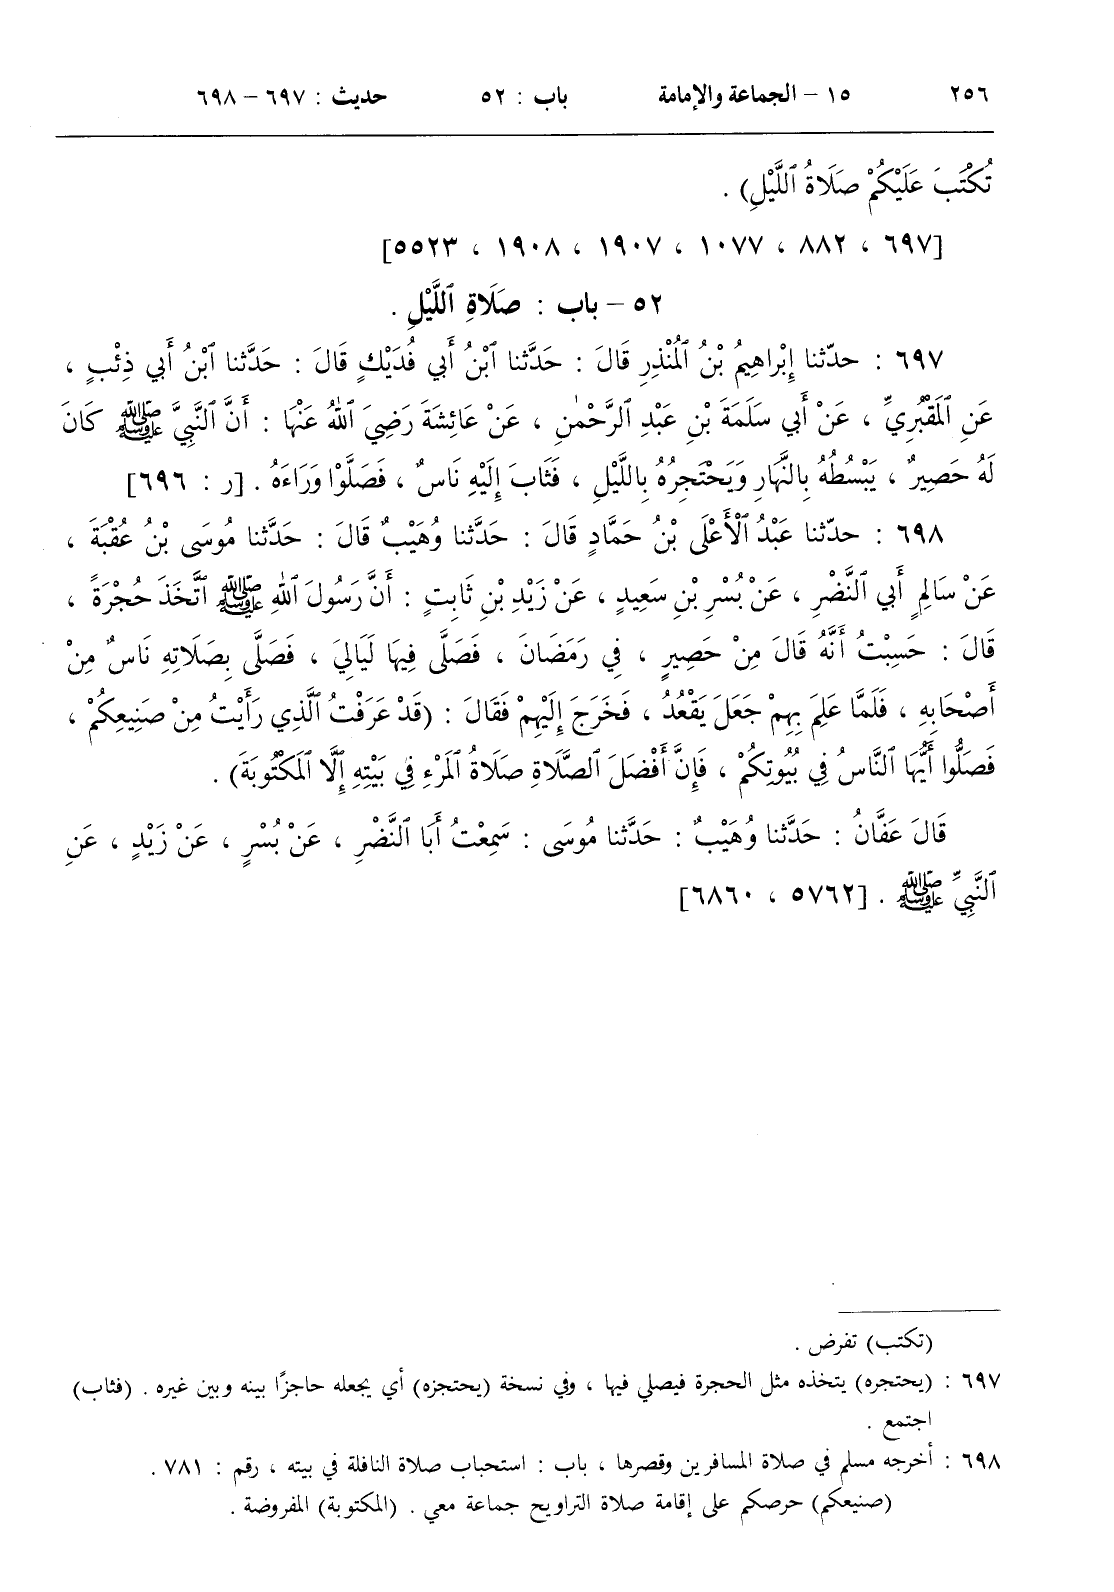 ٢٥٦ ١٥ – الجماعة والإمامة باب : ٥٢ حديث : ٦٩٧ – ٦٩٨
تُكْتَبَ عَلَيْكُمْ صَلَاةُ اللَّيْلِ) .
[٦٩٧ ، ٨٨٢ ، ١٠٧٧ ، ١٩٠٧ ، ١٩٠٨ ، ٥٥٢٣]
٥٢ – باب : صَلَاةِ اللَّيْلِ .
٦٩٧ : حدّثنا إِبْراهِيمُ بْنُ الْمُنْذِرِ قَالَ : حَدَّثنا ابْنُ أَبي فُدَيْكٍ قَالَ : حَدَّثنا ابْنُ أَبي ذِئْبٍ ،
عَنِ الْمَقْبُرِيِّ ، عَنْ أَبي سَلَمَةَ بْنِ عَبْدِ الرَّحْمٰنِ ، عَنْ عَائِشَةَ رَضِيَ اللهُ عَنْهَا : أَنَّ النَّبِيَّ ﷺ كَانَ
لَهُ حَصِيرٌ ، يَبْسُطُهُ بِالنَّهَارِ وَيَحْتَجِرُهُ بِاللَّيْلِ ، فَثَابَ إِلَيْهِ نَاسٌ ، فَصَلَّوْا وَرَاءَهُ . [ر : ٦٩٦]
٦٩٨ : حدّثنا عَبْدُ الْأَعْلَى بْنُ حَمَّادٍ قَالَ : حَدَّثنا وُهَيْبٌ قَالَ : حَدَّثنا مُوسَى بْنُ عُقْبَةَ ،
عَنْ سَالِمٍ أَبي النَّضْرِ ، عَنْ بُسْرِ بْنِ سَعِيدٍ ، عَنْ زَيْدِ بْنِ ثَابِتٍ : أَنَّ رَسُولَ اللهِ ﷺ اتَّخَذَ حُجْرَةً ،
قَالَ : حَسِبْتُ أَنَّهُ قَالَ مِنْ حَصِيرٍ ، فِي رَمَضَانَ ، فَصَلَّى فِيهَا لَيَالِيَ ، فَصَلَّى بِصَلَاتِهِ نَاسٌ مِنْ
أَصْحَابِهِ ، فَلَمَّا عَلِمَ بِهِمْ جَعَلَ يَقْعُدُ ، فَخَرَجَ إِلَيْهِمْ فَقَالَ : (قَدْ عَرَفْتُ الَّذِي رَأَيْتُ مِنْ صَنِيعِكُمْ ،
فَصَلُّوا أَيُّهَا النَّاسُ فِي بُيُوتِكُمْ ، فَإِنَّ أَفْضَلَ الصَّلَاةِ صَلَاةُ الْمَرْءِ فِي بَيْتِهِ إِلَّا الْمَكْتُوبَةَ) .
قَالَ عَفَّانُ : حَدَّثنا وُهَيْبٌ : حَدَّثنا مُوسَى : سَمِعْتُ أَبَا النَّضْرِ ، عَنْ بُسْرٍ ، عَنْ زَيْدٍ ، عَنِ
النَّبِيِّ ﷺ . [٥٧٦٢ ، ٦٨٦٠]
(تكتب) تفرض .
٦٩٧ : (يحتجره) يتخذه مثل الحجرة فيصلي فيها ، وفي نسخة (يحتجزه) أي يجعله حاجزًا بينه وبين غيره . (فثاب)
اجتمع .
٦٩٨ : أخرجه مسلم في صلاة المسافرين وقصرها ، باب : استحباب صلاة النافلة في بيته ، رقم : ٧٨١ .
(صنيعكم) حرصكم على إقامة صلاة التراويح جماعة معي . (المكتوبة) المفروضة .